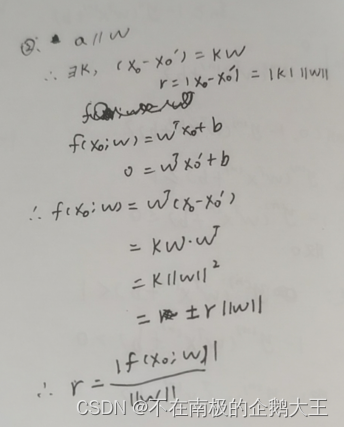 ②: a // w
∴ ∃k, (x₀-x₀′) = kw
r = |x₀-x₀′| = |k| ||w||
f(x₀; w) = wᵀx₀ + b
0 = wᵀx₀′ + b
∴ f(x₀; w) = wᵀ(x₀-x₀′)
= kw·wᵀ
= k||w||²
= ± r ||w||
∴ r = |f(x₀; w)| / ||w||
CSDN @不在南极的企鹅大王